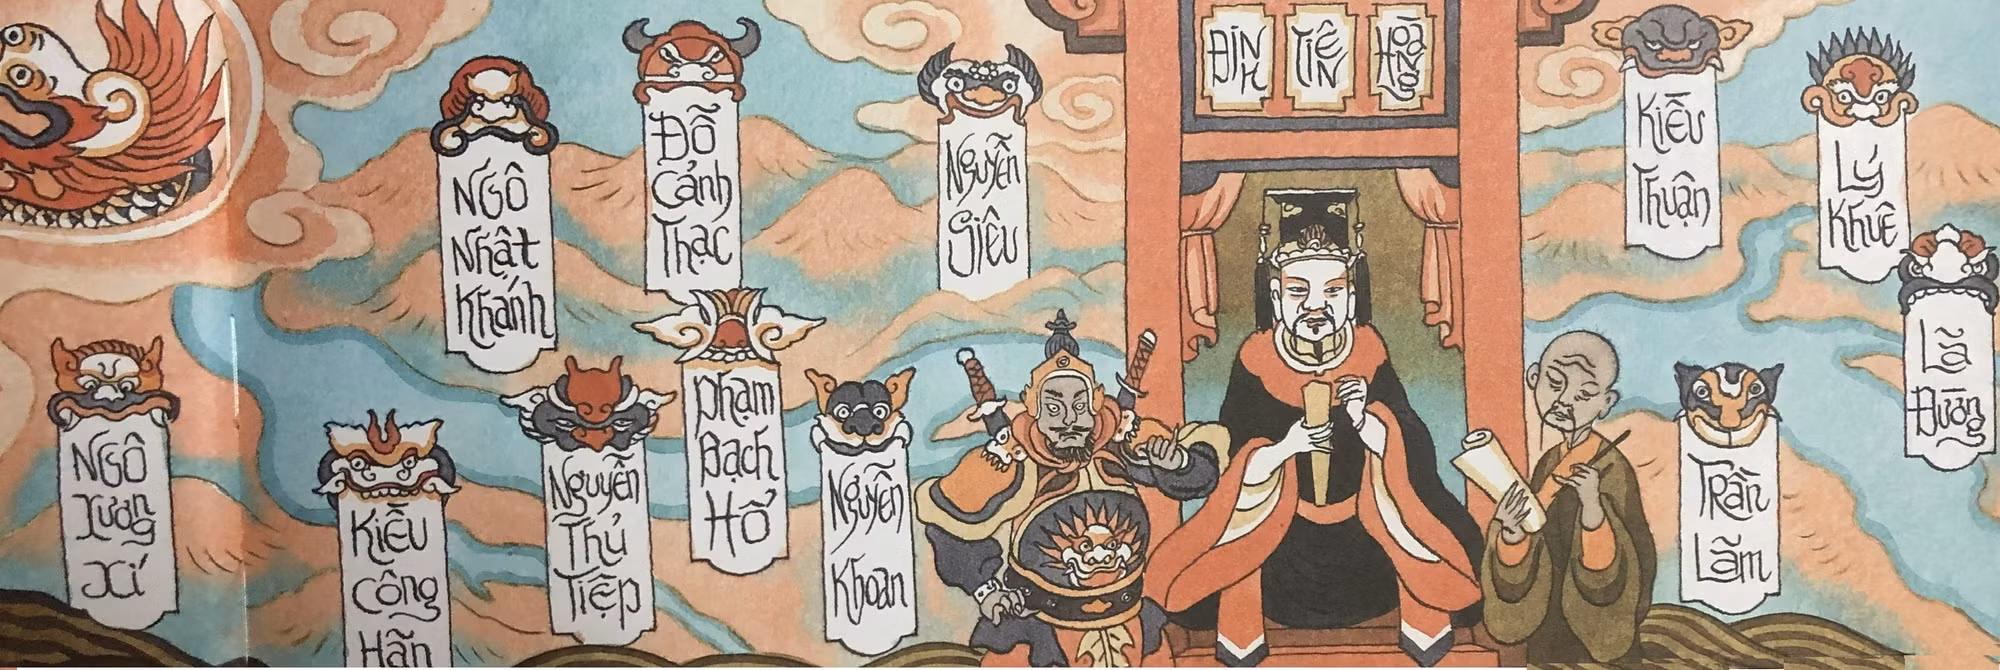 ĐINH
TIÊN
HOÀNG
NGÔ
NHẬT
KHÁNH
ĐỖ
CẢNH
THẠC
NGUYỄN
SIÊU
KIỀU
THUẬN
LÝ
KHUÊ
LÃ
ĐƯỜNG
NGÔ
XƯƠNG
XÍ
KIỀU
CÔNG
HÃN
NGUYỄN
THỦ
TIỆP
PHẠM
BẠCH
HỔ
NGUYỄN
KHOAN
TRẦN
LÃM